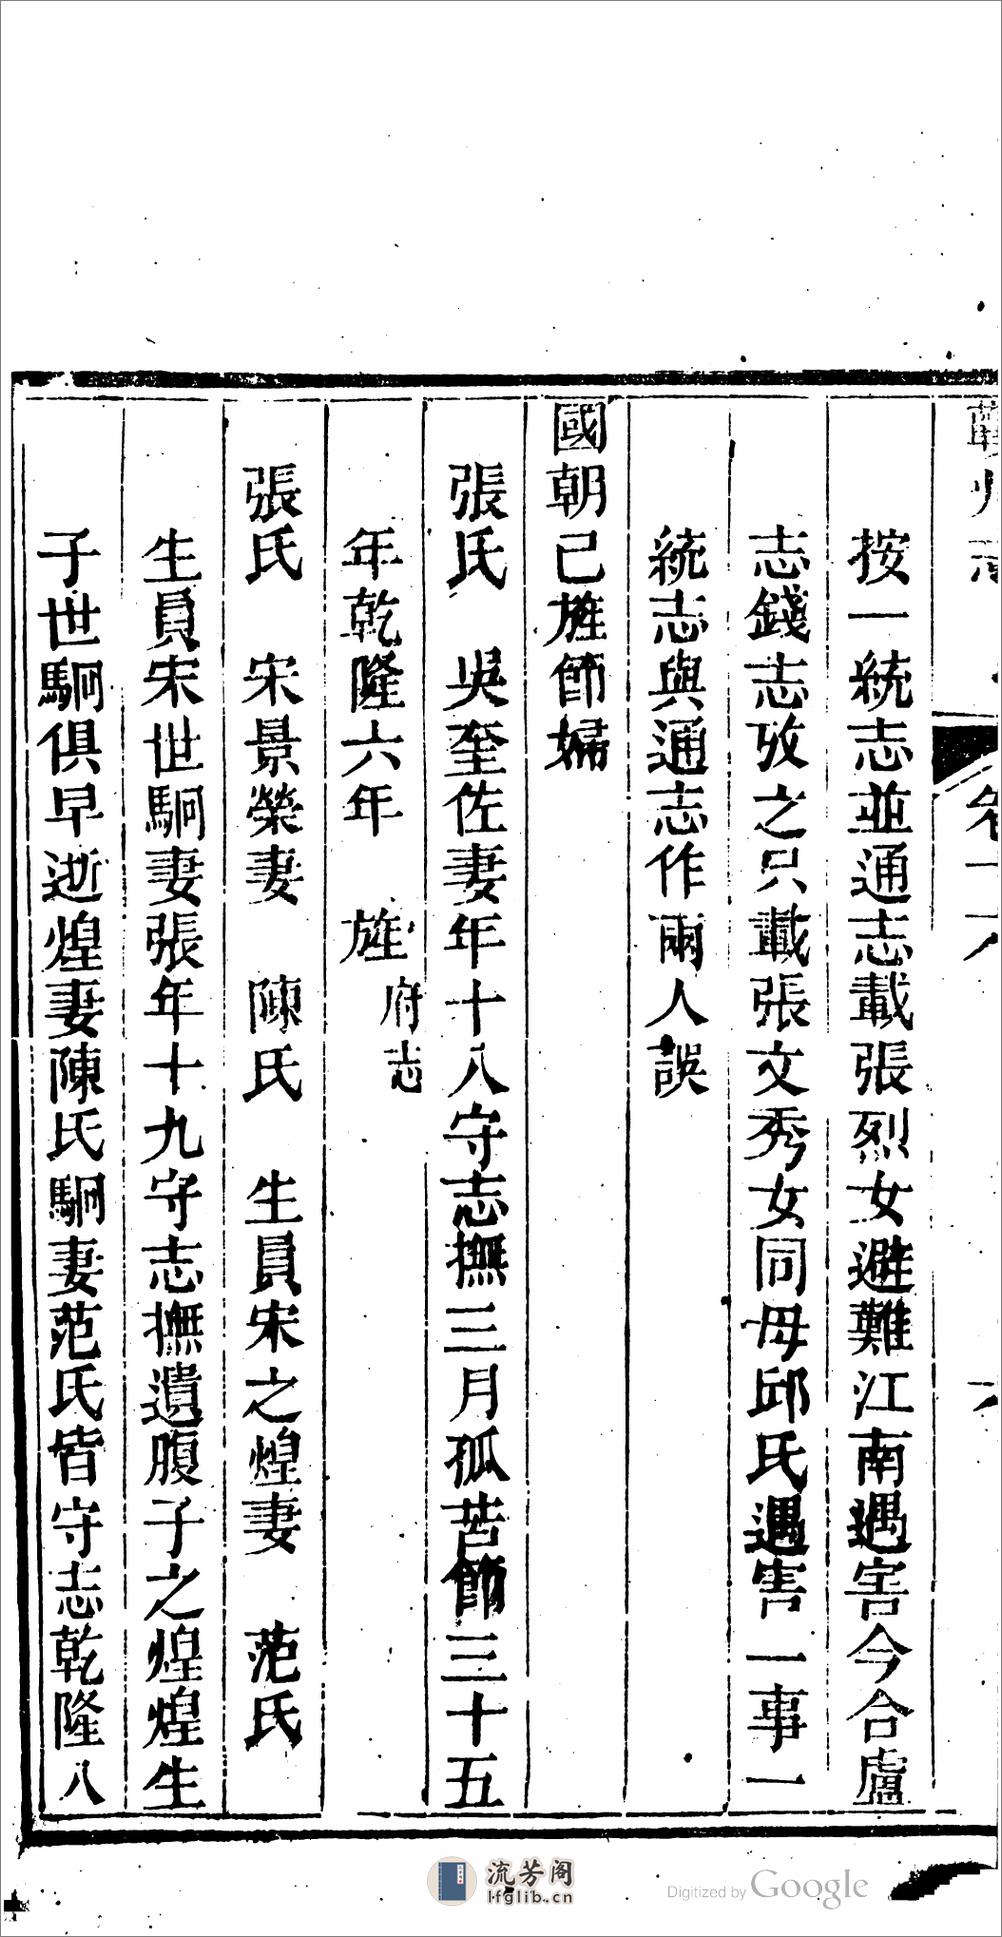 蘄州志
卷十八
按一統志並通志載張烈女避難江南遇害今合盧
志錢志攷之只載張文秀女同母邱氏遇害一事一
統志與通志作兩人誤
國朝已旌節婦
張氏　吳奎佐妻年十八守志撫三月孤苦節三十五
年乾隆六年　旌府志
張氏　宋景榮妻　陳氏　生員宋之煌妻　范氏
生員宋世駉妻張年十九守志撫遺腹子之煌煌生
子世駉俱早逝煌妻陳氏駉妻范氏皆守志乾隆八
流芳阁
lfglib.cn
Digitized by Google